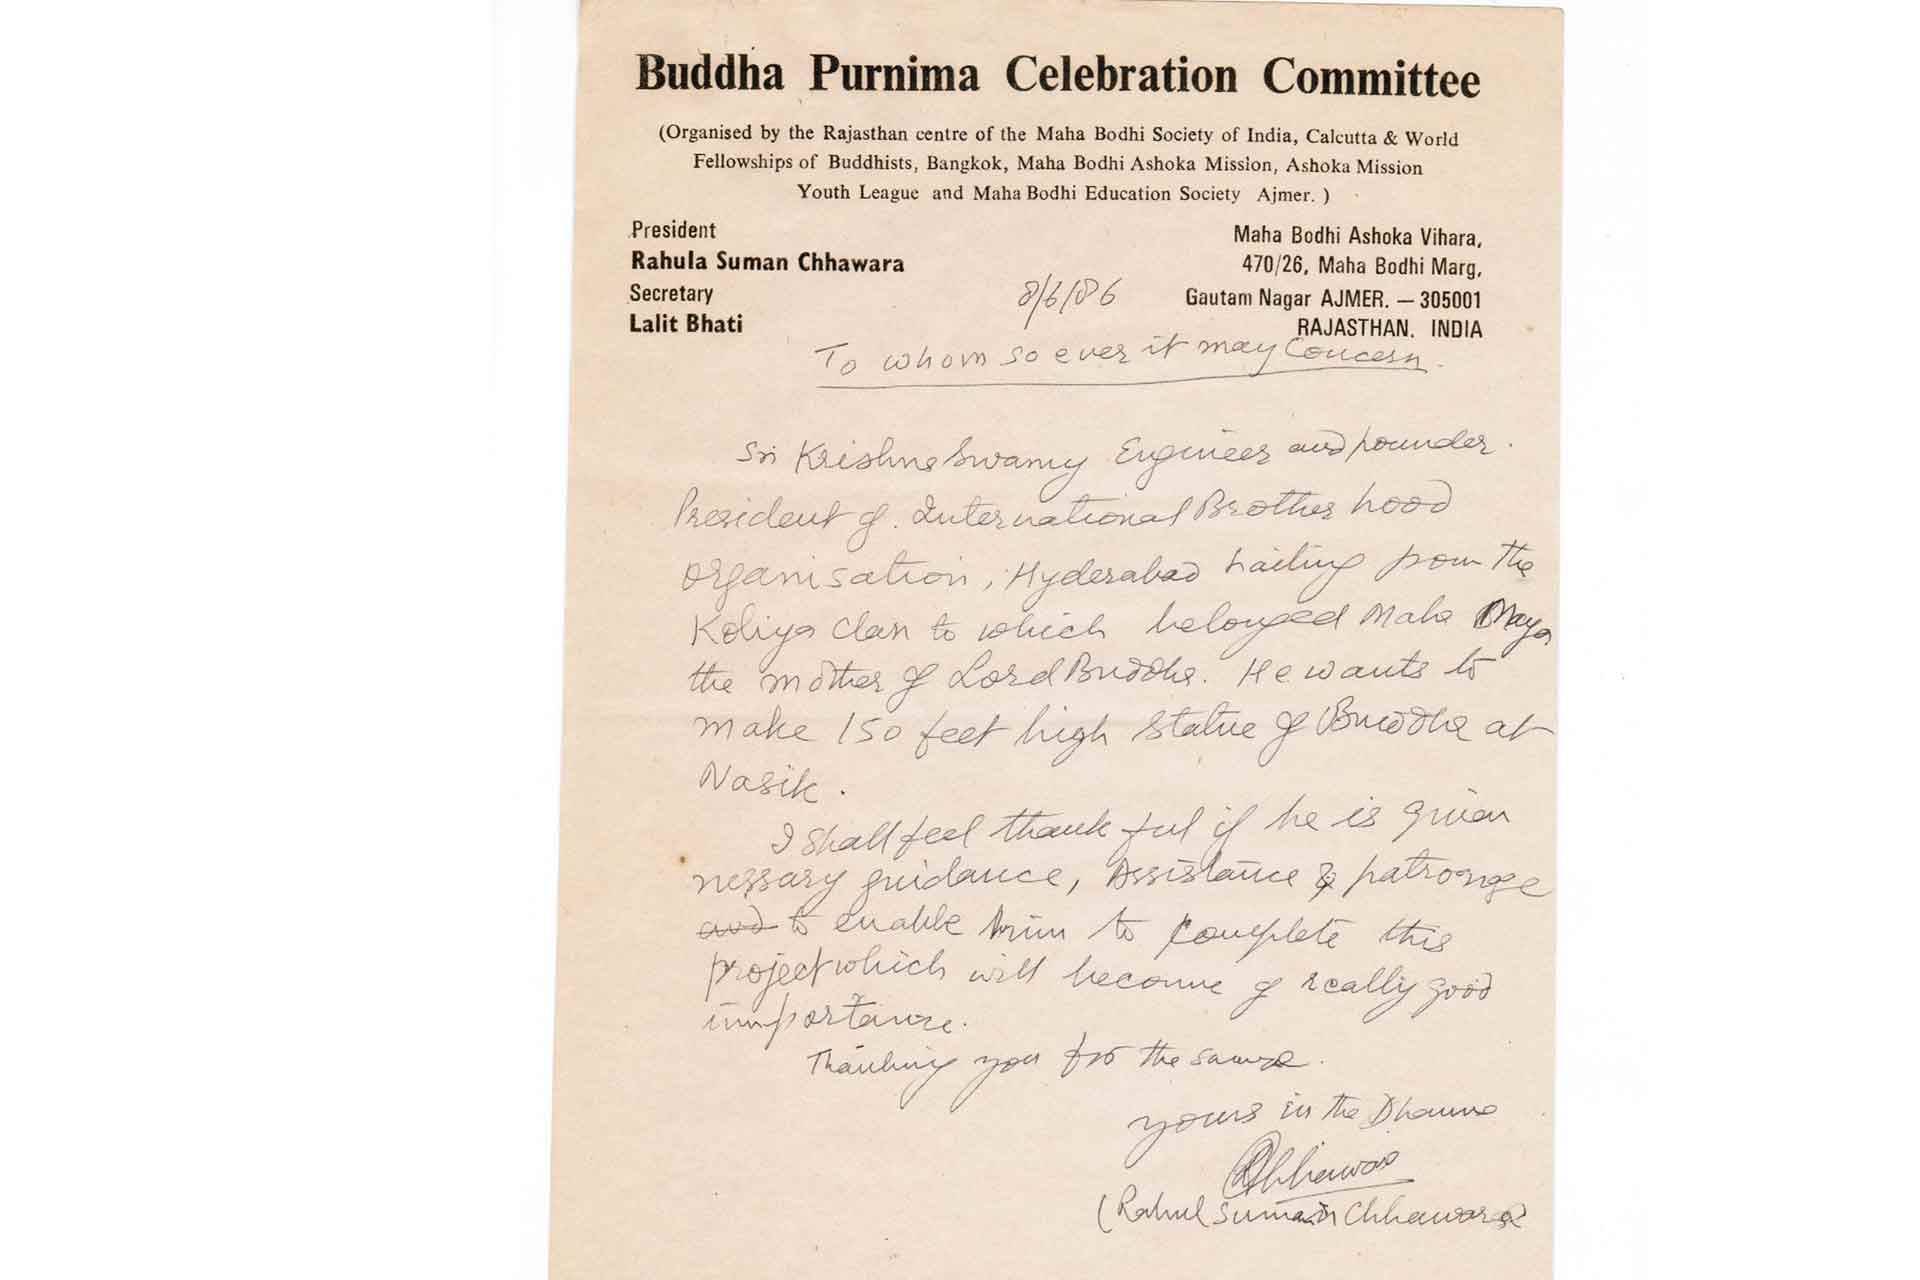 Buddha Purnima Celebration Committee
(Organised by the Rajasthan centre of the Maha Bodhi Society of India, Calcutta & World
Fellowships of Buddhists, Bangkok, Maha Bodhi Ashoka Mission, Ashoka Mission
Youth League and Maha Bodhi Education Society Ajmer. )
President
Rahula Suman Chhawara
Secretary
Lalit Bhati
Maha Bodhi Ashoka Vihara,
470/26, Maha Bodhi Marg,
Gautam Nagar AJMER. — 305001
RAJASTHAN. INDIA
8/6/86
To whom so ever it may Concern.
Sri Krishna Swamy Engineer and founder
President of International Brother hood
organisation, Hyderabad hailing from the
Koliya clan to which belonged Maha Maya
the mother of Lord Buddha. He wants to
make 150 feet high statue of Buddha at
Nasik.
I shall feel thank ful if he is given
nessary guidance, Assistance & patroange
and to enable him to complete this
project which will become of really good
importance.
Thanking you for the same.
yours in the Dhamma
Chhawara
(Rahul Suman Chhawara)